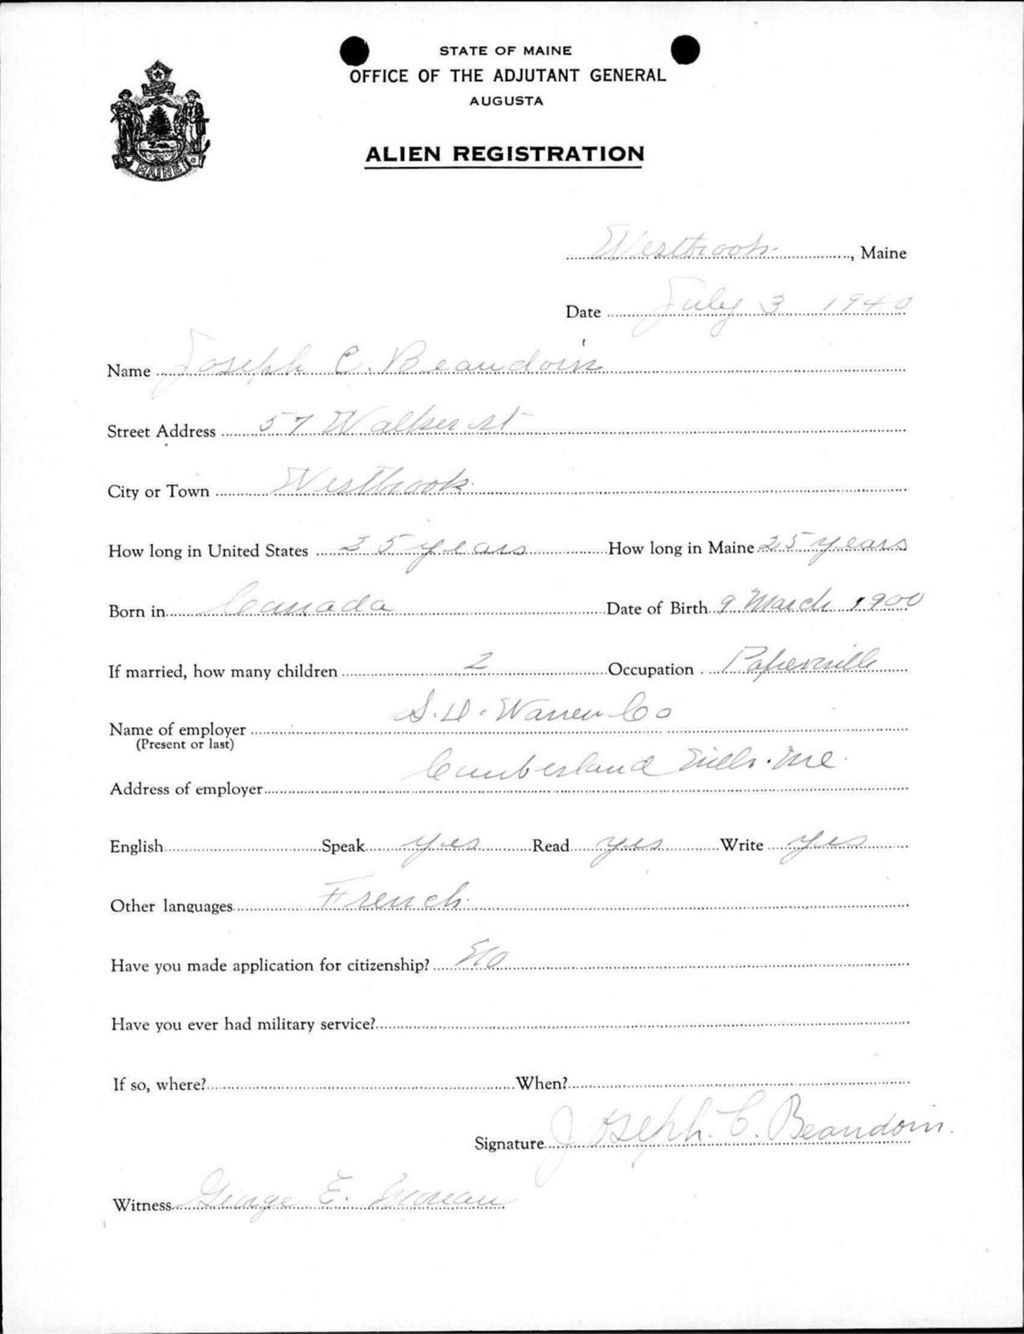 STATE OF MAINE
OFFICE OF THE ADJUTANT GENERAL
AUGUSTA
ALIEN REGISTRATION
MAINE
Westbrook, Maine
Date July 3 1940
Name Joseph C. Beaudoin
Street Address 57 Walker st
City or Town Westbrook
How long in United States 25 years How long in Maine 25 years
Born in Canada Date of Birth 9 March 1900
If married, how many children 2 Occupation Papermill
Name of employer S.D. Warren Co
(Present or last)
Address of employer Cumberland Mills. Me.
English Speak yes Read yes Write yes
Other languages French
Have you made application for citizenship? No
Have you ever had military service?
If so, where? When?
Signature Joseph. C. Beaudoin.
Witness George E.